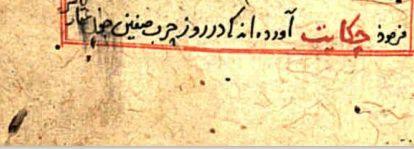 فرمود حکایت آورده اند که در روز حرب صفین